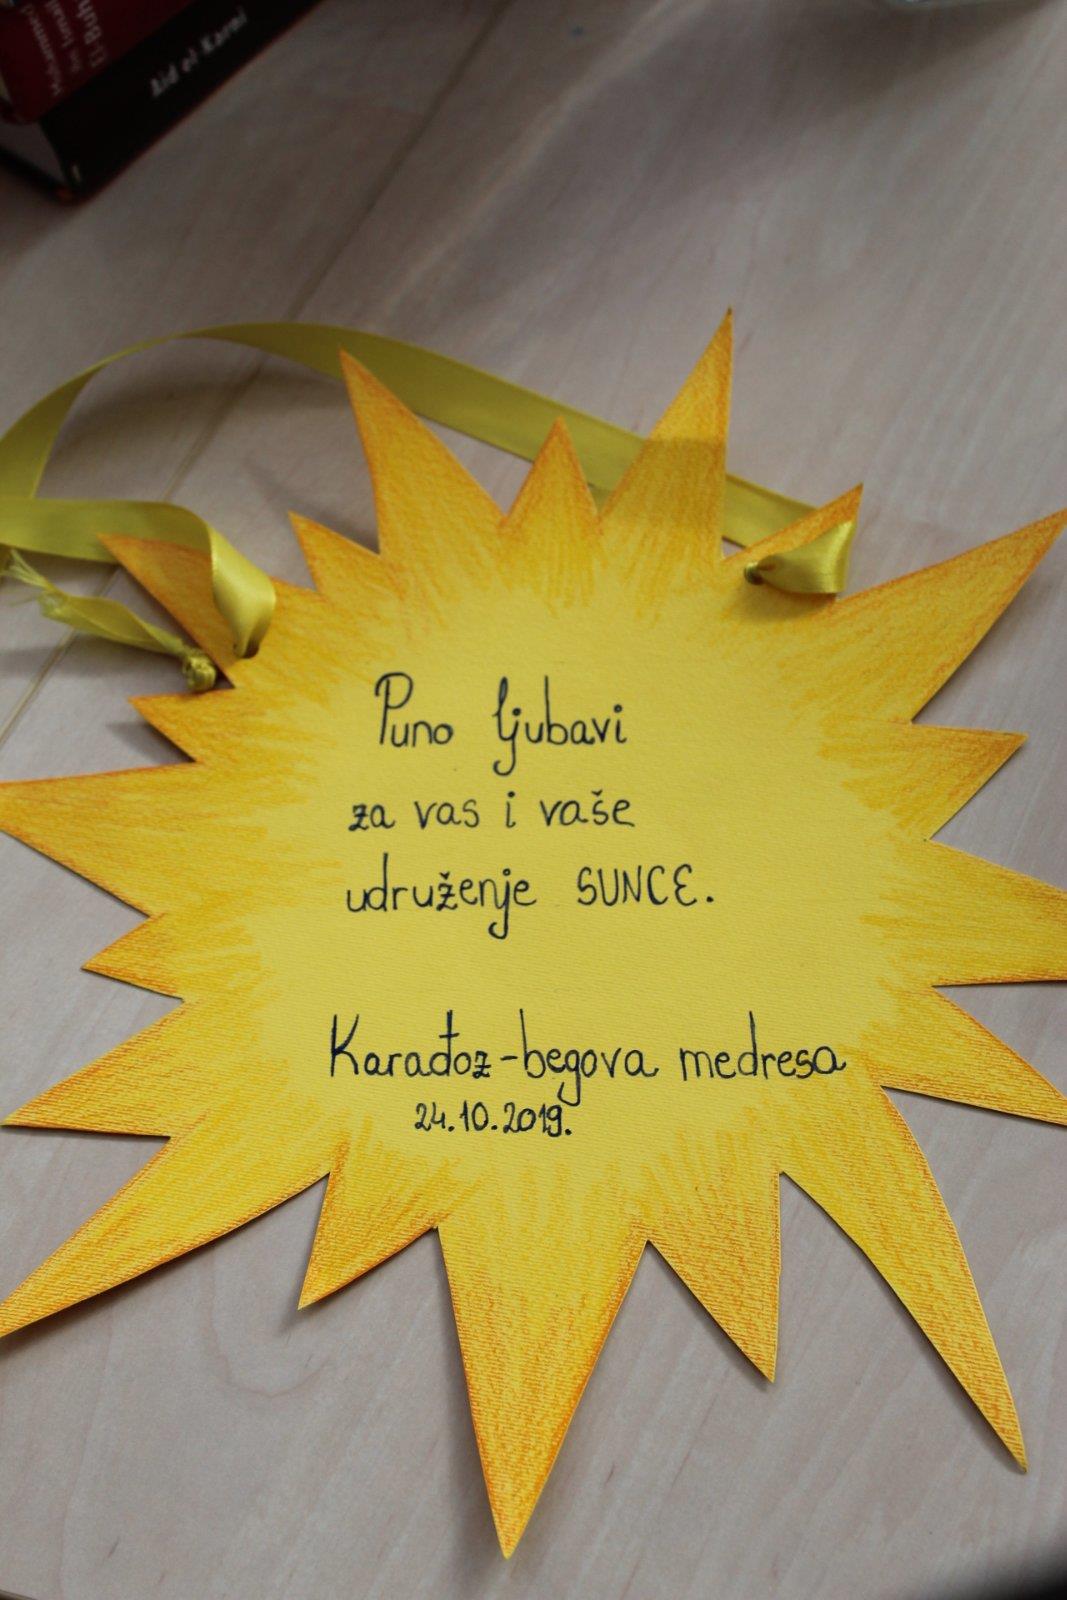 Aid el-Karni
Puno ljubavi
za vas i vaše
udruženje SUNCE.
Karađoz-begova medresa
24.10.2019.